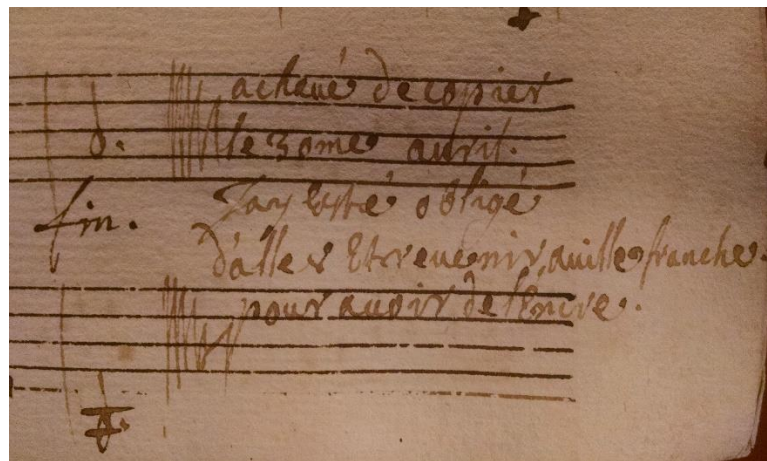 achaué de copier
le 30me auril.
fin.
Jay Esté obligé
d'aller Et reuenir, auille franche.
pour auoir de l'Encre.